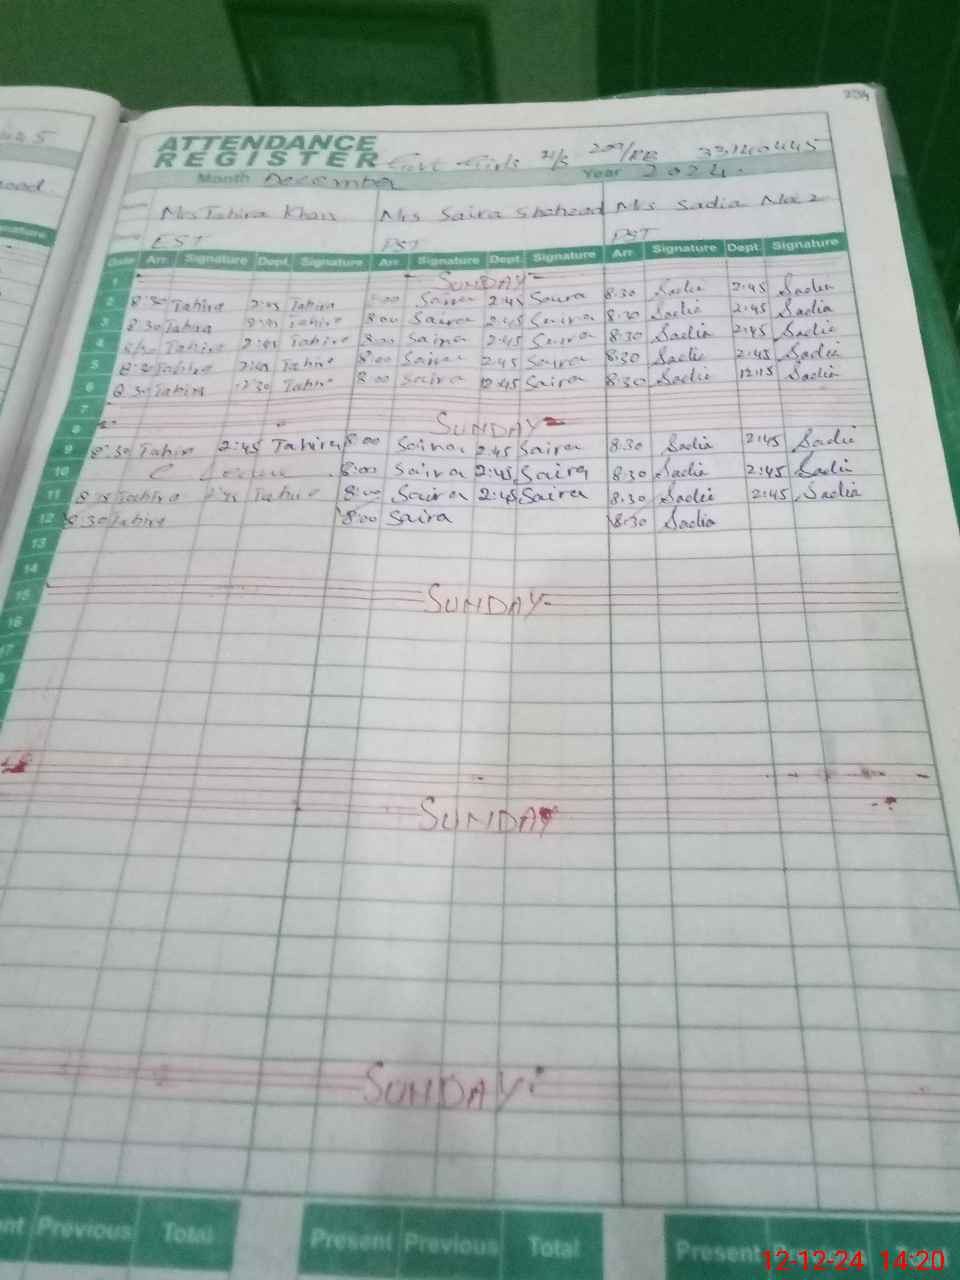 234
ATTENDANCE
REGISTER Govt Girls 33140445
Month December Year 2024.
Mrs Tahira Khan Mrs Saira Shaheed Mrs Sadia
EST PST PST
Date Arr. Signature Dept. Signature Arr. Signature Dept. Signature Arr. Signature Dept Signature
1 SUNDAY
2 8:30 Tahira 2:45 Tahira 8:00 Saira 2:45 Saira 8:30 Sadia 2:45 Sadia
3 8:30 Tahira Tahira 8:00 Saira 2:45 Saira 8:30 Sadia 2:45 Sadia
4 Tahira 2:45 Tahira 8:00 Saira 2:45 Saira 8:30 Sadia 2:45 Sadia
5 8:30 Tahira 2:45 Tahira 8:00 Saira 2:45 Saira 8:30 Sadia 2:45 Sadia
6 8:30 Tahira Tahira 8:00 Saira 12:45 Saira 8:30 Sadia 12:15 Sadia
7
8 SUNDAY
9 8:30 Tahira 2:45 Tahira 8:00 Saira 2:45 Saira 8:30 Sadia 2:45 Sadia
10 C Leave 8:00 Saira 2:45 Saira 8:30 Sadia 2:45 Sadia
11 Tahira 2:45 Tahira 8:00 Saira 2:45 Saira 8:30 Sadia 2:45 Sadia
12 8:30 Tahira 8:00 Saira 8:30 Sadia
13
14
15 SUNDAY
16
17
SUNDAY
SUNDAY
Previous Total Present Previous Total Present
12-12-24 14:20